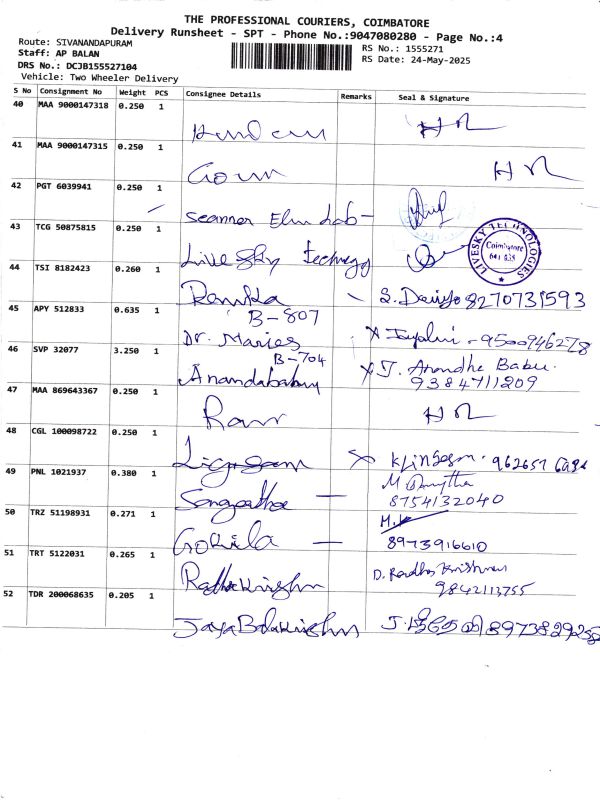 THE PROFESSIONAL COURIERS, COIMBATORE
Delivery Runsheet - SPT - Phone No.:9047080280 - Page No.:4
Route: SIVANANDAPURAM
Staff: AP BALAN
DRS No.: DCJB155527104
Vehicle: Two Wheeler Delivery
RS No.: 1555271
RS Date: 24-May-2025
S No Consignment No Weight PCS Consignee Details Remarks Seal & Signature
40 MAA 9000147318 0.250 1
41 MAA 9000147315 0.250 1
42 PGT 6039941 0.250 1
Scanner Elm Lab -
43 TCG 50875815 0.250 1
Live Sky
LIVESKY TECHNOLOGIES
Coimbatore
641 035
44 TSI 8182423 0.260 1
8270731593
B-807
45 APY 512833 0.635 1
Dr. Maries
9500946278
B-704
46 SVP 32077 3.250 1
Anandababu
J. Anandha Babu.
9384711209
47 MAA 869643367 0.250 1
Ram
48 CGL 100098722 0.250 1
49 PNL 1021937 0.380 1
8754132040
50 TRZ 51198931 0.271 1
Gokila
8973916610
51 TRT 5122031 0.265 1
Radhakrishn
D. Radha Krishnan
9842113755
52 TDR 200068635 0.205 1
Jaya Balakrishn